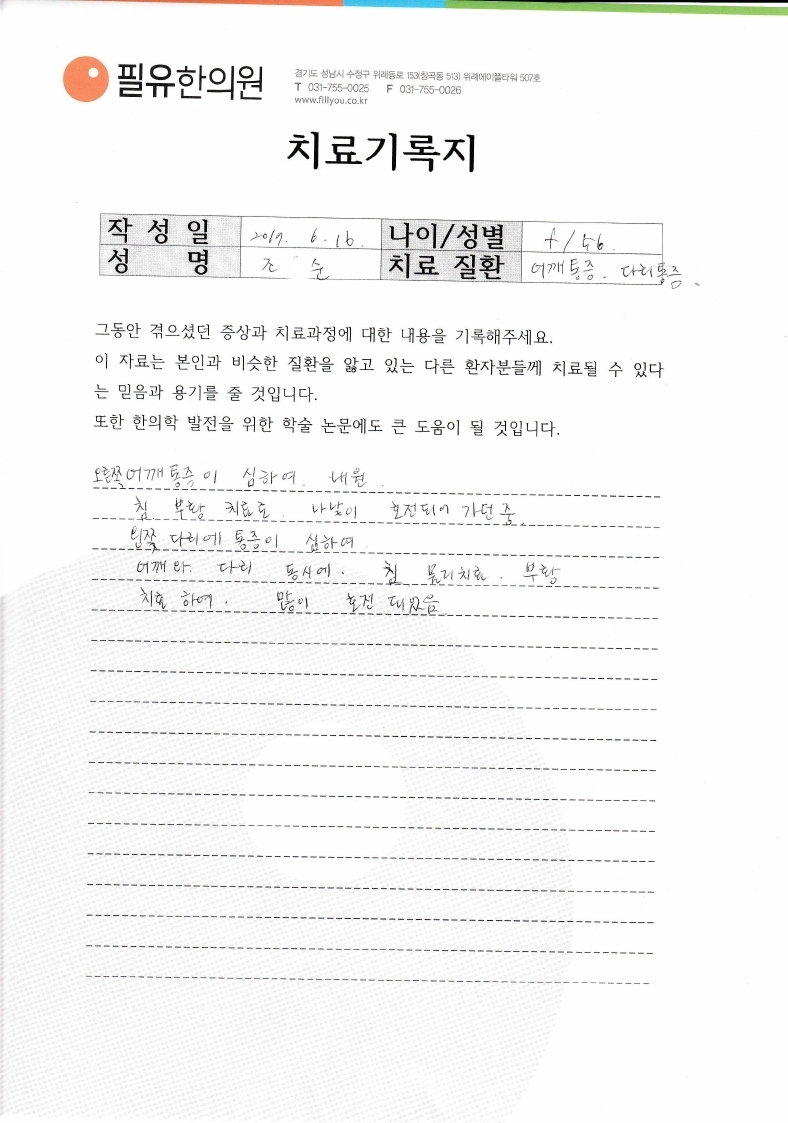 필유한의원
경기도 성남시 수정구 위례동로 153(창곡동 513) 위례에이플타워 507호
T 031-755-0025 F 031-755-0026
www.fillyou.co.kr
치료기록지
작 성 일 2019. 6. 16. 나이/성별 f / 56.
성 명 조 순 치료 질환 어깨통증. 다리통증.
그동안 겪으셨던 증상과 치료과정에 대한 내용을 기록해주세요.
이 자료는 본인과 비슷한 질환을 앓고 있는 다른 환자분들께 치료될 수 있다
는 믿음과 용기를 줄 것입니다.
또한 한의학 발전을 위한 학술 논문에도 큰 도움이 될 것입니다.
오른쪽 어깨통증이 심하여. 내원.
침 부항 치료로. 나날이 호전되어 가던 중.
왼쪽 다리에 통증이 심하여.
어깨와. 다리 동시에. 침 물리치료. 부항
치료 하여. 많이 호전 되었음.